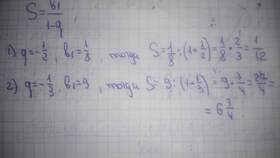 S = b₁/(1-q)
1) q = -1/2, b₁ = 1/8, тогда S = 1/8 : (1 + 1/2) = 1/8 · 2/3 = 1/12
2) q = -1/3, b₁ = 9, тогда S = 9 : (1 + 1/3) = 9 · 3/4 = 27/4 =
= 6 3/4